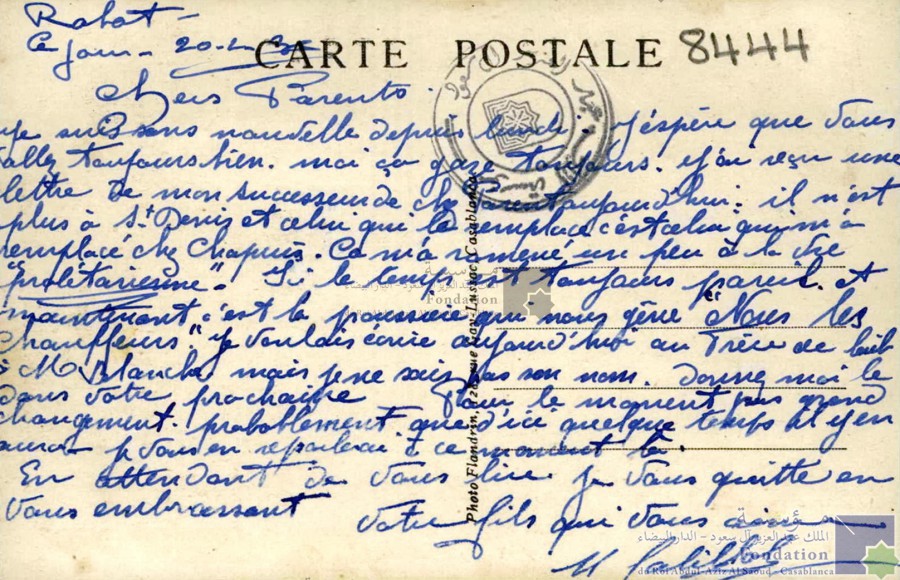 Rabat -
Ce jour - 20-2-
CARTE POSTALE 8444
Chers Parents.
Je suis sans nouvelle depuis lundi. J'espère que vous
allez toujours bien. moi ça gaze toujours. J'ai reçu une
lettre de mon successeur de chez Parent aujourd'hui. il n'est
plus à St Denis et celui qui le remplace c'est celui qui m'a
remplacé chez Chapuis. Ca m'a ramené un peu à la vie
"prolétarienne". Ici le temps est toujours pareil. Et
maintenant c'est la poussière qui nous gêne "Nous les
Chauffeurs" Je voulais écrire aujourd'hui au frère de
à M Blanche mais je ne sais pas son nom. Donnez moi le
dans votre prochaine Pour le moment pas grand
changement. probablement que d'ici quelque temps il y en
aura je vous en reparlerai à ce moment là.
En attendant de vous lire je vous quitte en
vous embrassant
votre fils qui vous aime
Photo Flandrin, avenue Gay-Lussac, Casablanca
مؤسسة
الملك عبد العزيز آل سعود - الدار البيضاء
Fondation
du Roi Abdul-Aziz Al Saoud - Casablanca
مؤسسة
الملك عبد العزيز آل سعود - الدار البيضاء
Fondation